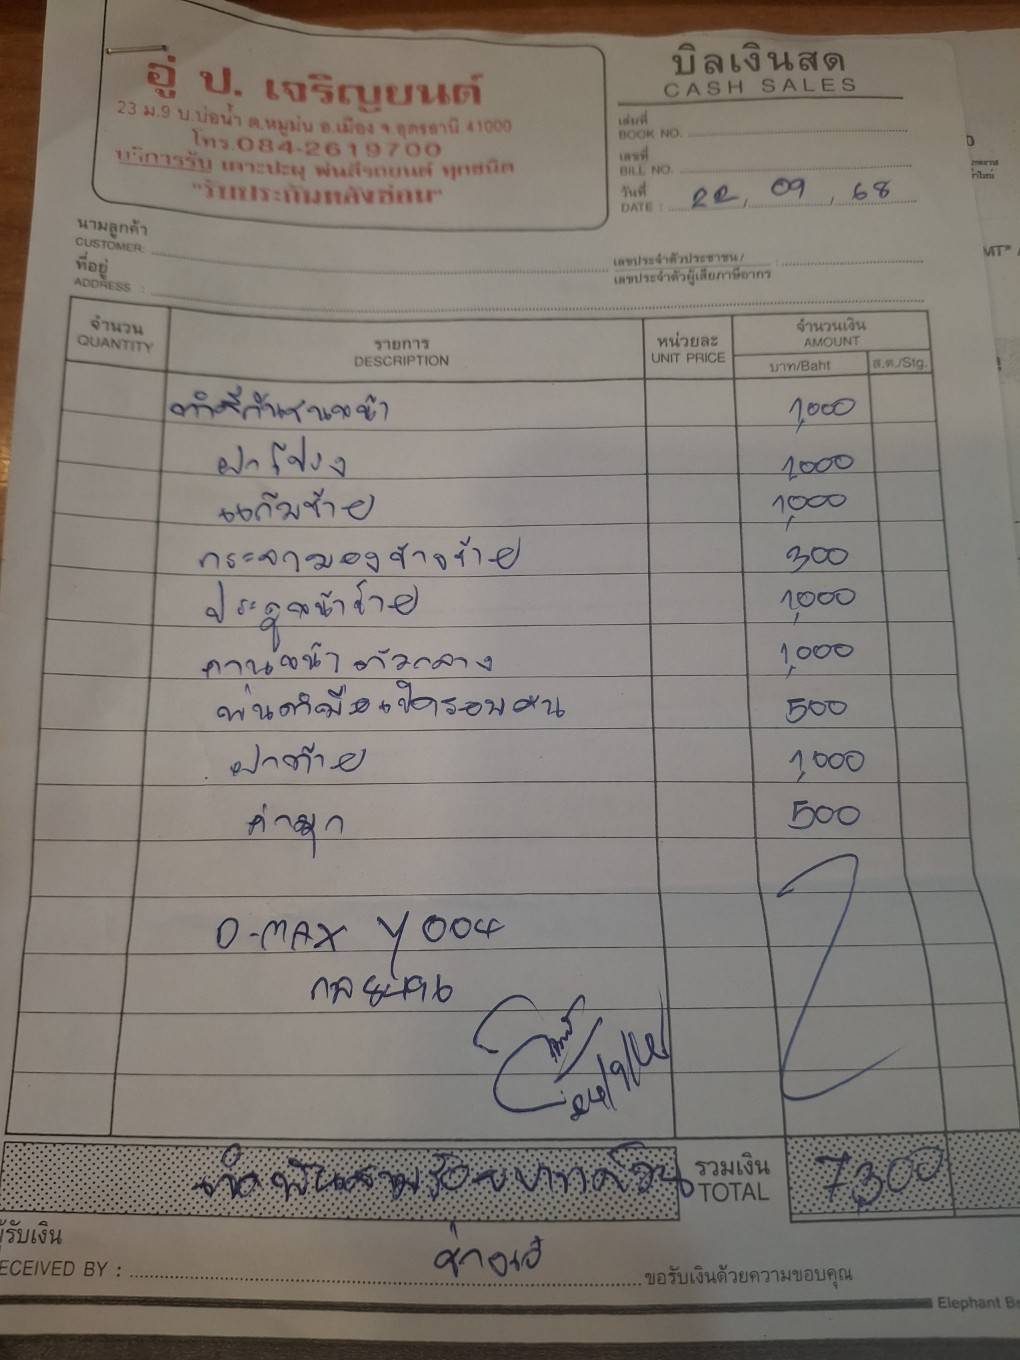 อู่ ป. เจริญยนต์
23 ม.9 บ.บ่อน้ำ ต.หมูม่น อ.เมือง จ.อุดรธานี 41000
โทร.084-2619700
บริการรับ เคาะปะผุ พ่นสีรถยนต์ ทุกชนิด
"รับประกันหลังซ่อม"
บิลเงินสด
CASH SALES
เล่มที่
BOOK NO.
เลขที่
BILL NO.
วันที่
DATE : 22, 09, 68
นามลูกค้า
CUSTOMER:
ที่อยู่
ADDRESS :
เลขประจำตัวประชาชน / :
เลขประจำตัวผู้เสียภาษีอากร
จำนวน รายการ หน่วยละ จำนวนเงิน
QUANTITY DESCRIPTION UNIT PRICE AMOUNT
บาท/Baht ส.ต./Stg.
ทำสีกันชนหน้า 1,000
ฝาโปรง 1,000
แก้มซ้าย 1,000
กระจกมองข้างซ้าย 300
ประตูหน้าซ้าย 1,000
คานหน้าตัวกลาง 1,000
500
ฝาท้าย 1,000
ค่ามุก 500
D-MAX Y004
กล 8496
เจ็ดพันสามร้อยบาทถ้วน รวมเงิน 7,300
TOTAL
ผู้รับเงิน
RECEIVED BY : ขอรับเงินด้วยความขอบคุณ
Elephant